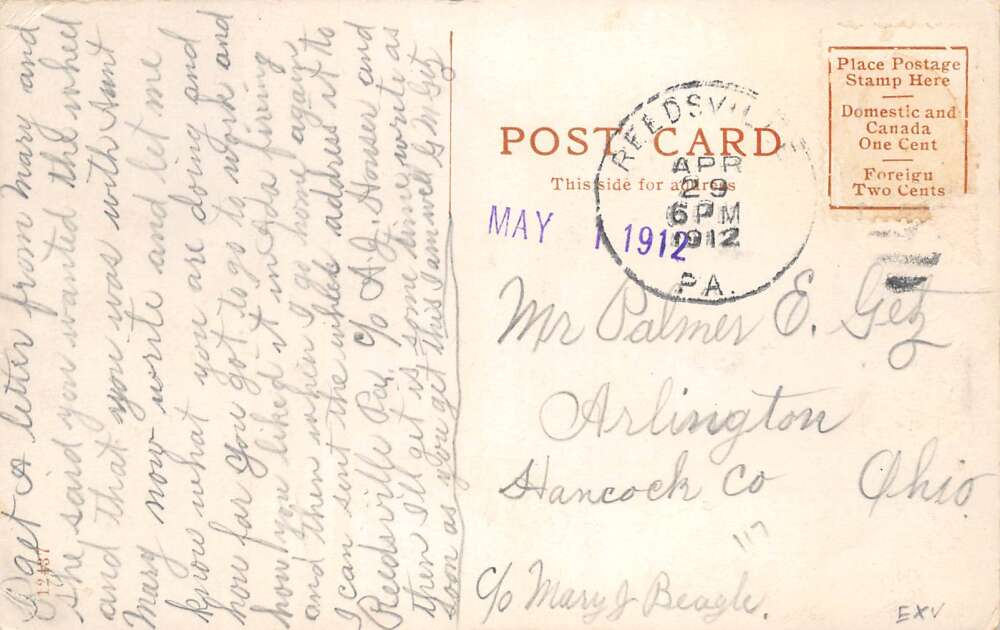 I get A letter from Mary and
she said you wanted the wheel
and that you was with Aunt
Mary now write and let me
know what you are doing and
how far you got to go to work and
how you liked it in Florida
and then when I go home again
I can sent the wheel address it to
Reedsville Pa. c/o A. J. Houser and
then Ill get is some time, write as
soon as you get this I am well G M Getz
12437
POST CARD
This side for address
REEDSVILLE
APR
29
6 PM
1912
PA.
MAY 1 1912
Place Postage
Stamp Here
Domestic and
Canada
One Cent
Foreign
Two Cents
Mr Palmer E. Getz
Arlington
Hancock Co Ohio
c/o Mary J Beagle.
117
EXV